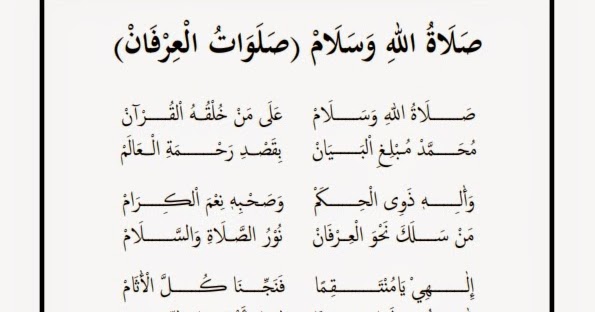 صَلَاةُ اللهِ وَسَلَامْ (صَلَوَاتُ الْعِرْفَانْ)
صَـــلَاةُ اللهِ وَسَــــلَامْ عَلَى مَنْ خُلْقُـهُ الْقُـــرْآنْ
مُحَـــمَّدْ مُـبْلِغِ الْبَـــيَانْ بِقَصْدِ رَحْـــمَةِ الْـعَالَمْ
وَأٰلِـــهٖ ذَوِى الْحِـــكَمْ وَصَـحْبِهٖ نِعْمَ الْكِــــرَامْ
مَنْ سَـــلَكَ نَحْوَ الْعِـرْفَانْ نُوْرُ الصَّـلَاةِ وَالسَّــلَامْ
إِلٰـــهِيْ يَامُنْتَــــقِـمًا فَنَجِّـنَا كُــــلَّ الْأَثَامْ